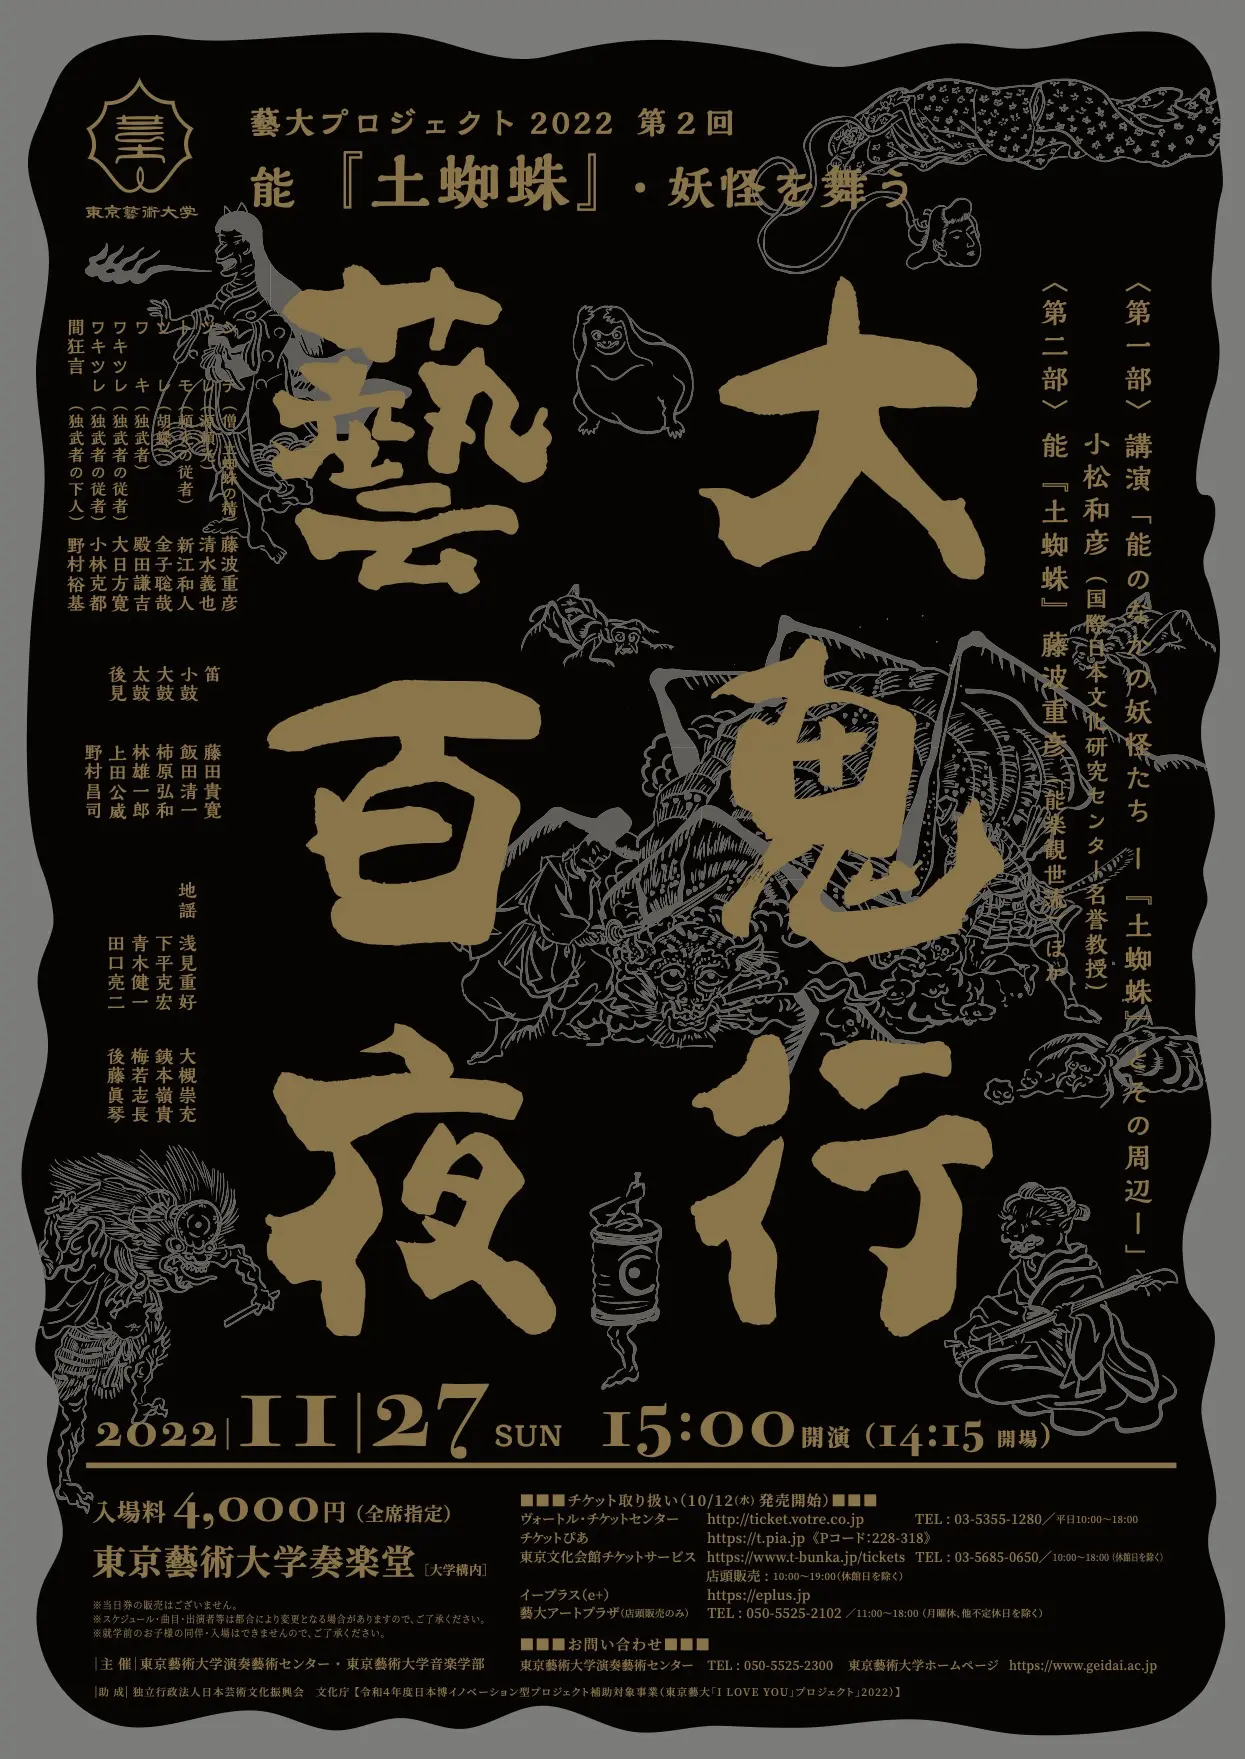 東京藝術大学
藝大プロジェクト 2022 第2回
能『土蜘蛛』・妖怪を舞う
大鬼行
藝百夜
〈第一部〉 講演「能のなかの妖怪たち ー『土蜘蛛』とその周辺ー」
小松和彦（国際日本文化研究センター名誉教授）
〈第二部〉 能『土蜘蛛』 藤波重彦（能楽観世流）ほか
シテ（僧／土蜘蛛の精） 藤波重彦
ツレ（源頼光） 清水義也
トモ（頼光の従者） 新江和人
ツレ（胡蝶） 金子聡哉
ワキ（独武者） 殿田謙吉
ワキツレ（独武者の従者） 大日方寛
ワキツレ（独武者の従者） 小林克都
間狂言（独武者の下人） 野村裕基
笛 藤田貴寛
小鼓 飯田清一
大鼓 柿原弘和
太鼓 林雄一郎
後見 上田公威
野村昌司
地謡 浅見重好 大槻崇充
下平克宏 鉄本嶺貴
青木健一 梅若志長
田口亮二 後藤眞琴
2022|11|27 SUN 15:00開演（14:15 開場）
入場料 4,000円（全席指定）
東京藝術大学奏楽堂［大学構内］
※当日券の販売はございません。
※スケジュール・曲目・出演者等は都合により変更となる場合がありますので、ご了承ください。
※就学前のお子様の同伴・入場はできませんので、ご了承ください。
|主 催| 東京藝術大学演奏藝術センター・東京藝術大学音楽学部
|助 成| 独立行政法人日本芸術文化振興会 文化庁【令和4年度日本博イノベーション型プロジェクト補助対象事業（東京藝大「I LOVE YOU」プロジェクト2022）】
■■■チケット取り扱い（10/12（水）発売開始）■■■
ヴォートル・チケットセンター http://ticket.votre.co.jp TEL : 03-5355-1280／平日10:00〜18:00
チケットぴあ https://t.pia.jp《Pコード:228-318》
東京文化会館チケットサービス https://www.t-bunka.jp/tickets TEL : 03-5685-0650／10:00〜18:00（休館日を除く）
店頭販売：10:00〜19:00（休館日を除く）
イープラス（e+） https://eplus.jp
藝大アートプラザ（店頭販売のみ） TEL : 050-5525-2102 ／11:00〜18:00（月曜休、他不定休日を除く）
■■■お問い合わせ■■■
東京藝術大学演奏藝術センター TEL : 050-5525-2300 東京藝術大学ホームページ https://www.geidai.ac.jp